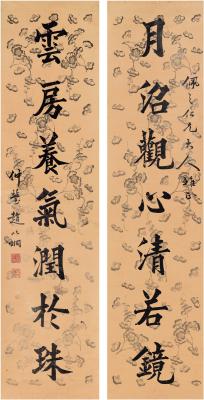 月沼觀心清若鏡
佩之仁兄大人雅正
雲房養氣潤於珠
仲瑩趙以炯